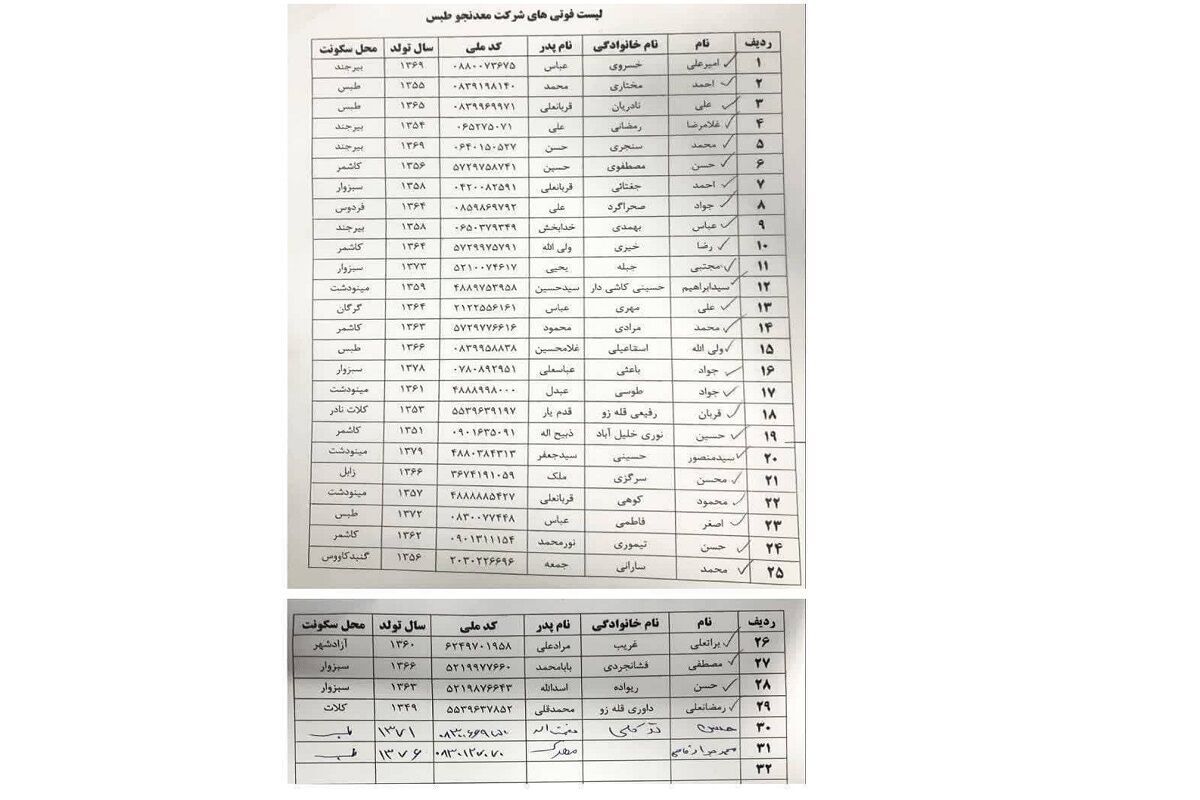 لیست فوتی های شرکت معدنجو طبس
ردیف نام نام خانوادگی نام پدر کد ملی سال تولد محل سکونت
۱ امیرعلی خسروی عباس ۰۸۸۰۰۷۳۶۷۵ ۱۳۶۹ بیرجند
۲ احمد مختاری محمد ۰۸۳۹۱۹۸۱۴۰ ۱۳۵۵ طبس
۳ علی نادریان قربانعلی ۰۸۳۹۹۶۹۹۷۱ ۱۳۶۵ طبس
۴ غلامرضا رمضانی علی ۰۶۵۲۷۵۰۷۱ ۱۳۵۴ بیرجند
۵ محمد سنجری حسن ۰۶۴۰۱۵۰۵۲۷ ۱۳۶۹ بیرجند
۶ حسن مصطفوی حسین ۵۷۲۹۷۵۸۷۴۱ ۱۳۵۶ کاشمر
۷ احمد جغتائی قربانعلی ۰۴۲۰۰۸۲۵۹۱ ۱۳۵۸ سبزوار
۸ جواد صحراگرد علی ۰۸۵۹۸۶۹۷۹۲ ۱۳۶۴ فردوس
۹ عباس بهمدی خدابخش ۰۶۵۰۳۷۹۳۴۹ ۱۳۵۸ بیرجند
۱۰ رضا خیری ولی الله ۵۷۲۹۹۷۵۷۹۱ ۱۳۶۴ کاشمر
۱۱ مجتبی جبله یحیی ۵۲۱۰۰۷۴۶۱۷ ۱۳۷۳ سبزوار
۱۲ سیدابراهیم حسینی کاشی دار سیدحسین ۴۸۸۹۷۵۳۹۵۸ ۱۳۵۹ مینودشت
۱۳ علی مهری عباس ۲۱۲۲۵۵۶۱۶۱ ۱۳۶۴ گرگان
۱۴ محمد مرادی محمود ۵۷۲۹۷۷۶۶۱۶ ۱۳۶۳ کاشمر
۱۵ ولی الله اسقاعیلی غلامحسین ۰۸۳۹۹۵۸۸۳۸ ۱۳۶۶ طبس
۱۶ جواد باعثی عباسعلی ۰۷۸۰۸۹۲۹۵۱ ۱۳۷۸ سبزوار
۱۷ جواد طوسی عبدل ۴۸۸۸۹۹۸۰۰۰ ۱۳۶۱ مینودشت
۱۸ قربان رفیعی قله زو قدم یار ۵۵۳۹۶۳۹۱۹۷ ۱۳۵۳ کلات نادر
۱۹ حسین نوری خلیل آباد ذبیح اله ۰۹۰۱۶۳۵۰۹۱ ۱۳۵۱ کاشمر
۲۰ سیدمنصور حسینی سیدجعفر ۴۸۸۰۳۸۴۳۱۳ ۱۳۷۹ مینودشت
۲۱ محسن سرگزی ملک ۳۶۷۴۱۹۱۰۵۹ ۱۳۶۶ زابل
۲۲ محمود کوهی قربانعلی ۴۸۸۸۸۸۵۴۲۷ ۱۳۵۷ مینودشت
۲۳ اصغر فاطمی عباس ۰۸۳۰۰۷۷۴۴۸ ۱۳۷۲ طبس
۲۴ حسن تیموری نورمحمد ۰۹۰۱۳۱۱۱۵۴ ۱۳۶۲ کاشمر
۲۵ محمد سارانی جمعه ۲۰۳۰۲۲۶۶۹۶ ۱۳۵۶ گنبدکاووس
ردیف نام نام خانوادگی نام پدر کد ملی سال تولد محل سکونت
۲۶ براتعلی غریب مرادعلی ۶۲۴۹۷۰۱۹۵۸ ۱۳۶۰ آزادشهر
۲۷ مصطفی فشانجردی بابامحمد ۵۲۱۹۹۷۷۶۶۰ ۱۳۶۶ سبزوار
۲۸ حسن ریواده اسدالله ۵۲۱۹۸۷۶۶۴۳ ۱۳۶۳ سبزوار
۲۹ رمضانعلی داوری قله زو محمدقلی ۵۵۳۹۶۳۷۸۵۲ ۱۳۴۹ کلات
۳۰ ۱۳۷۱
۳۱ ۱۳۷۶ طبس
۳۲